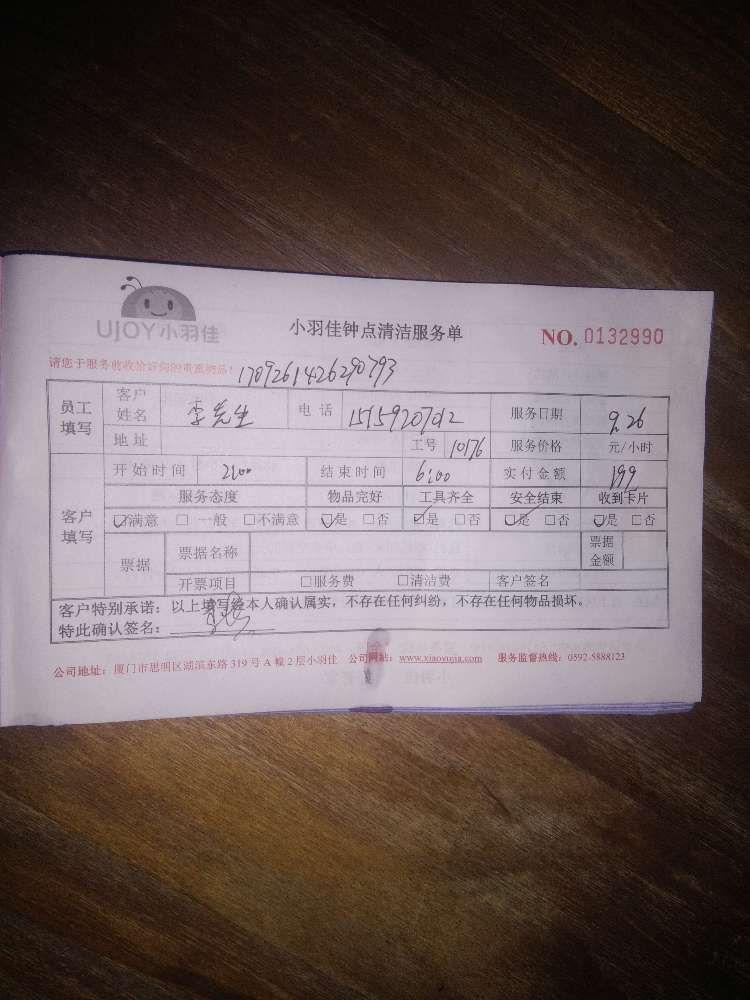 UJOY小羽佳
小羽佳钟点清洁服务单
NO. 0132990
请您于服务前收拾好您的贵重物品!
1709261426290793
员工填写 客户姓名 李先生 电话 服务日期 9.26
地址 工号 10176 服务价格 元/小时
客户填写 开始时间 2:00 结束时间 6:00 实付金额 199
服务态度 物品完好 工具齐全 安全结束 收到卡片
☑满意 □一般 □不满意 ☑是 □否 ☑是 □否 ☑是 □否 ☑是 □否
票据 票据名称 票据金额
开票项目 □服务费 □清洁费 客户签名
客户特别承诺：以上填写经本人确认属实，不存在任何纠纷，不存在任何物品损坏。
特此确认签名：
公司地址：厦门市思明区湖滨东路 319 号 A 幢 2 层小羽佳 公司网站：www.xiaoyujia.com 服务监督热线：0592-5888123